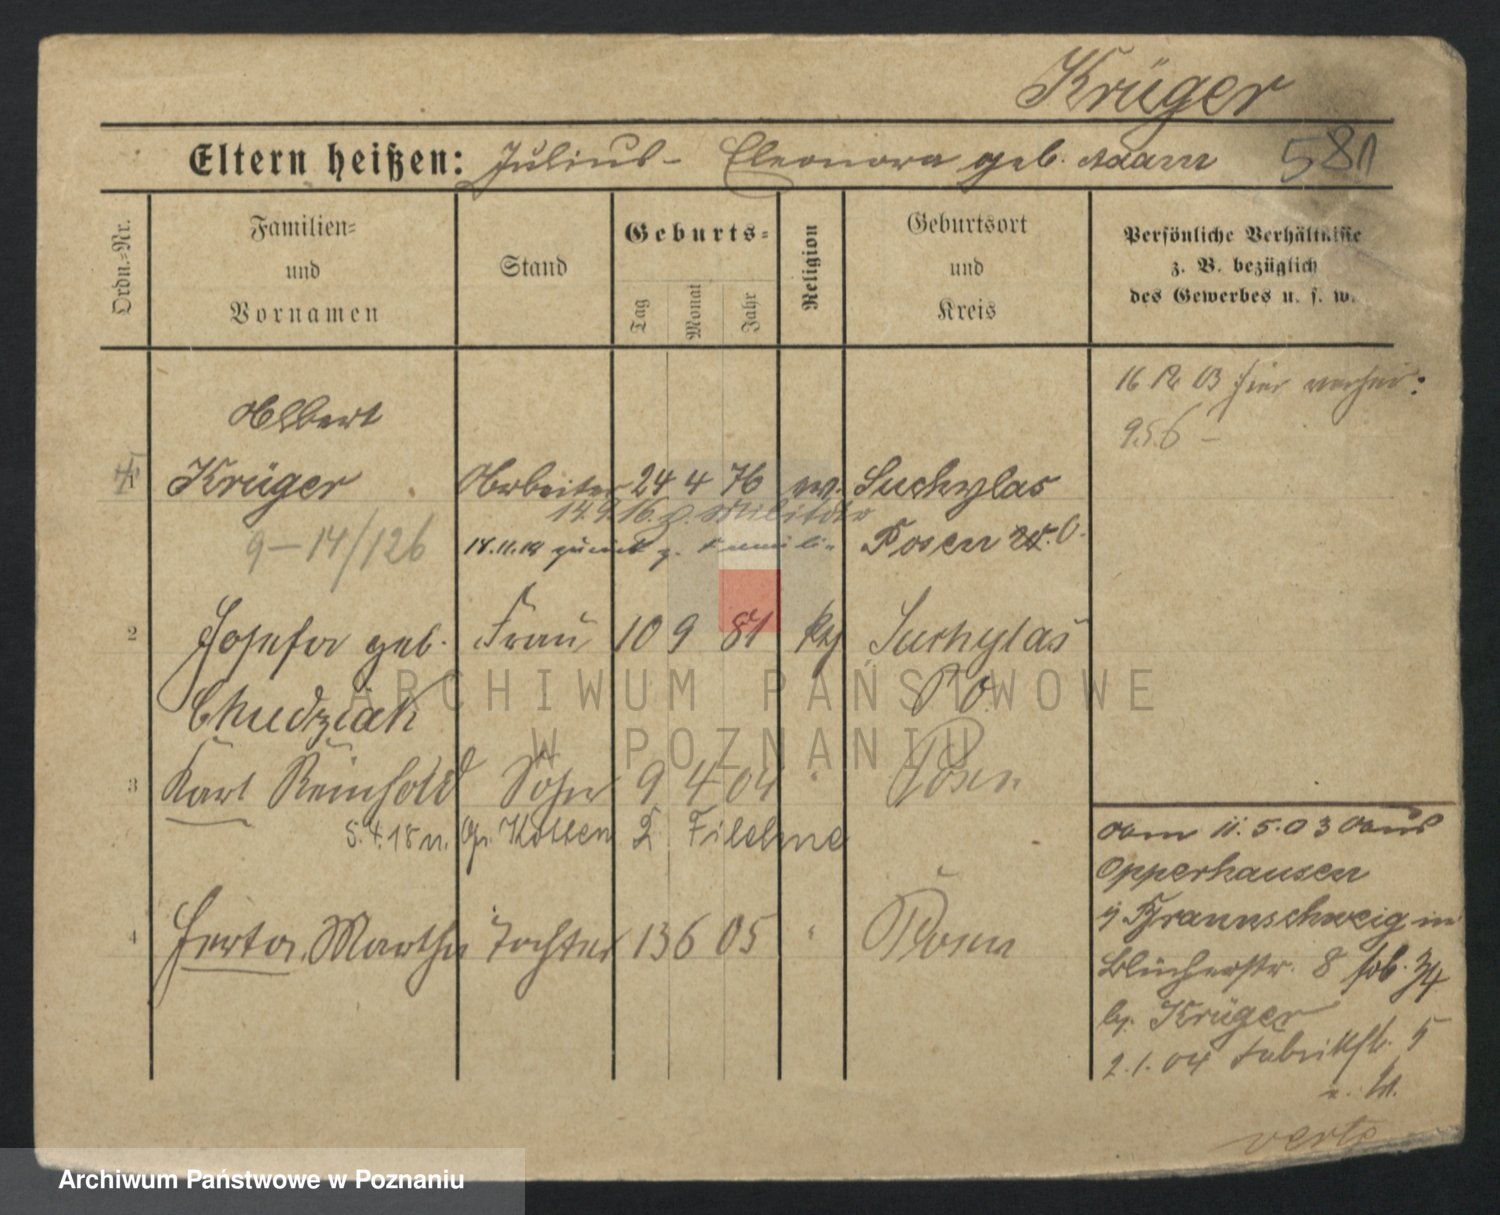 Krüger
Eltern heißen: Julius - Eleonora geb. Adam 581
Ordn.-Nr.
Familien-
und
Vornamen
Stand
Geburts-
Tag
Monat
Jahr
Religion
Geburtsort
und
Kreis
Persönliche Verhältnisse
z. B. bezüglich
des Gewerbes u. s. w.
16 12 03 hier verhei:
956 -
Albert
1 Krüger Arbeiter 24 4 76 ev. Suchylas
14.9.16. z. Militär
9-14/126 zurück z. Posen
2 Josefa geb. Frau 10 9 81 kth Suchylas
Chudziak Po.
3 Karl Reinhold Sohn 9 4 04 " Posen
5.4.18 n. Gr. Kotten Filehne
4 Herta Martha Tochter 13 6 05 " Posen
vom 11.5.03 aus
Opperhausen
Braunschweig in
Blücherstr. 8
b. Krüger
2.1.04 Fabrikstr. 5
verte
ARCHIWUM PAŃSTWOWE
W POZNANIU
Archiwum Państwowe w Poznaniu